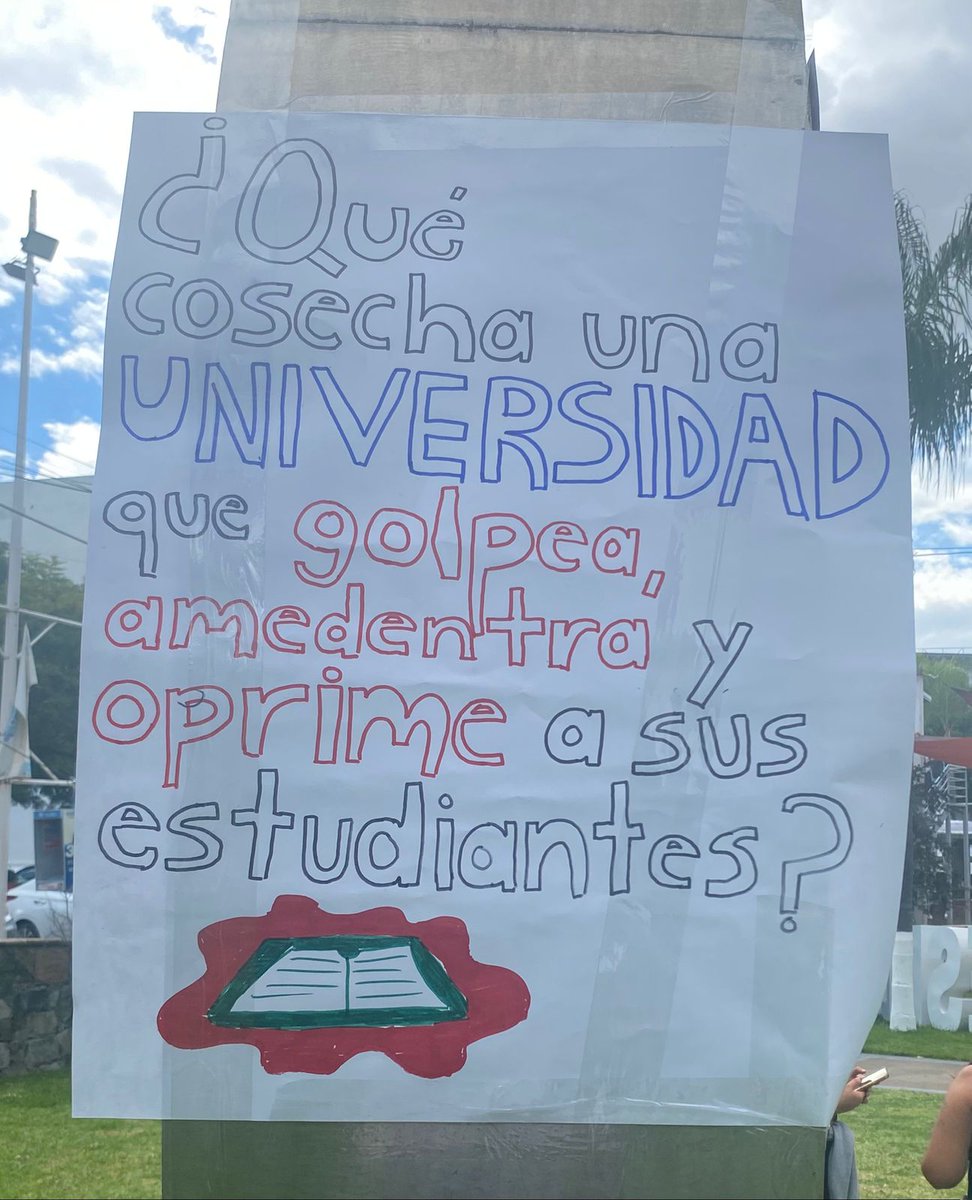 ¿Qué
cosecha una
UNIVERSIDAD
que golpea,
amedentra y
oprime a sus
estudiantes?